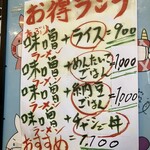 お得ランチ
味噌ラーメン+ライス=900
味噌ラーメン+めんたいごはん=1000
味噌ラーメン+納豆ごはん=1000
味噌ラーメン+チャーシュー丼
おすすめ 1,100